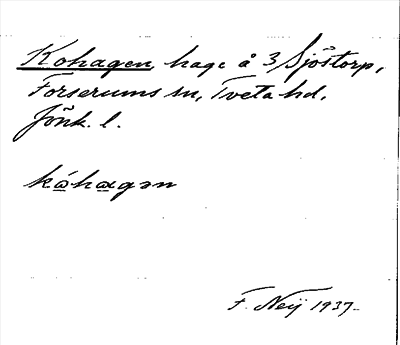 Kohagen, hage å 3/ Sjöstorp,
Forserums sn, Tveta hd,
Jönk. l.
kǿhagən
F. Neij 1937.